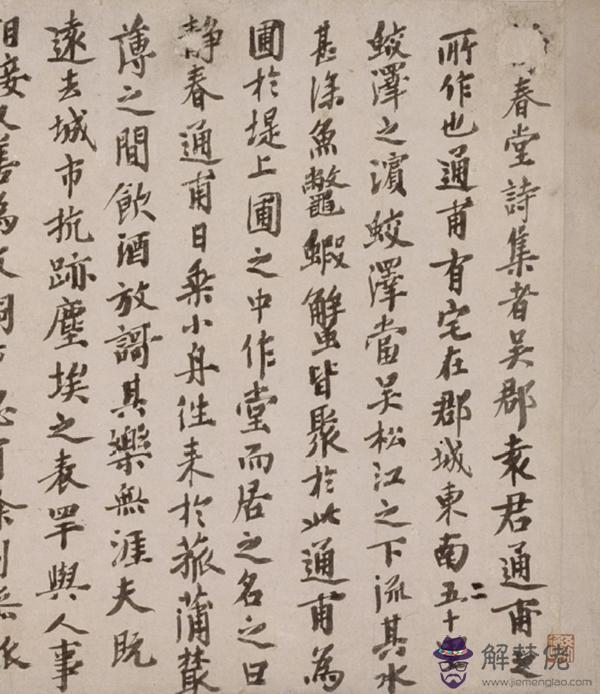 春堂詩集者吳郡袁君通甫之
所作也通甫有宅在郡城東南五十
二
蛟澤之濱蛟澤當吳松江之下流其水
甚深魚鼈蝦蟹皆聚於此通甫為
圃於堤上圃之中作堂而居之名之曰
靜春通甫日乘小舟往来於菰蒲叢
薄之間飲酒放謌其樂無涯夫既
遠去城市抗跡塵埃之表罕與人事
相接又善為文
解梦佬
www.jiemenglao.com